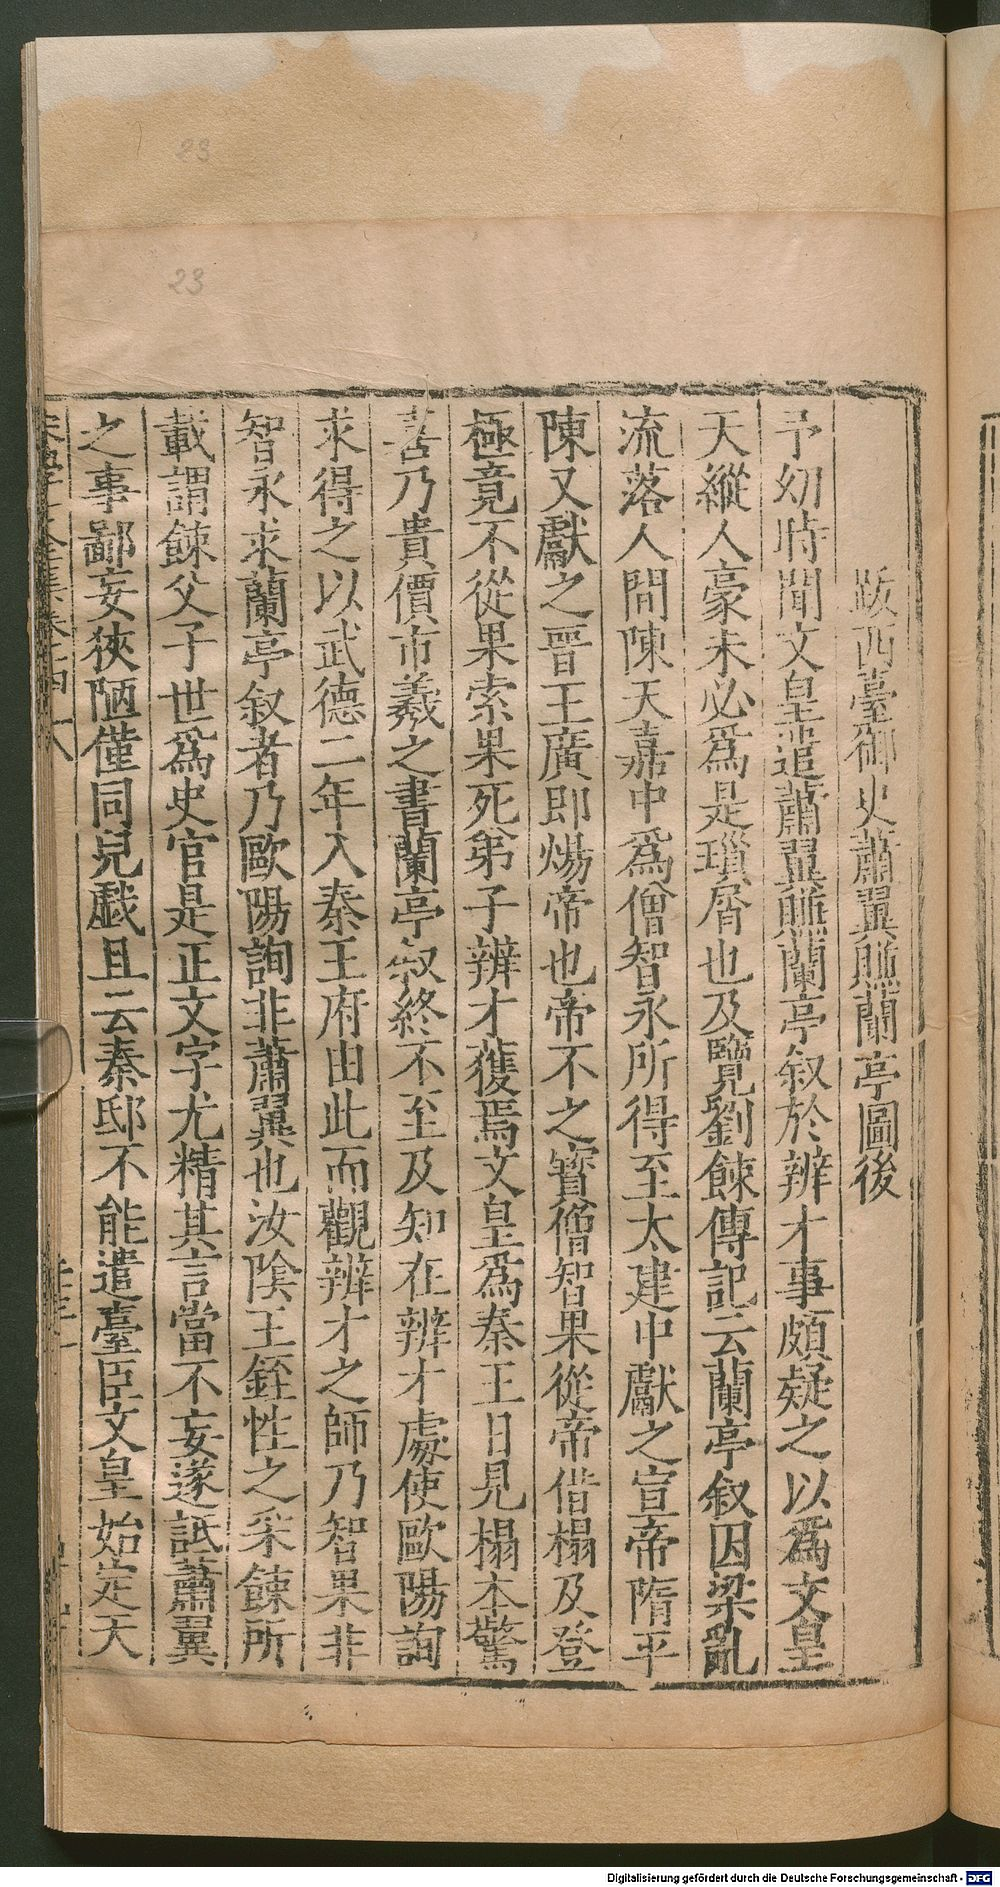 跋西臺御史蕭翼賺蘭亭圖後
予幼時聞文皇遣蕭翼賺蘭亭叙於辨才事頗疑之以爲文皇
天縱人豪未必爲是瑣屑也及覽劉餗傳記云蘭亭叙因梁亂
流落人間陳天嘉中爲僧智永所得至太建中獻之宣帝隋平
陳又獻之晋王廣即煬帝也帝不之寳僧智果從帝借榻及登
極竟不從果索果死弟子辨才獲焉文皇爲秦王日見榻本驚
喜乃貴價市羲之書蘭亭叙終不至及知在辨才處使歐陽詢
求得之以武德二年入秦王府由此而觀辨才之師乃智果非
智永求蘭亭叙者乃歐陽詢非蕭翼也汝陰王銍性之采餗所
載謂餗父子世爲史官是正文字尤精其言當不妄遂詆蕭翼
之事鄙妄狹陋僅同兒戲且云秦邸不能遣臺臣文皇始定天
23
23
Digitalisierung gefördert durch die Deutsche Forschungsgemeinschaft - DFG